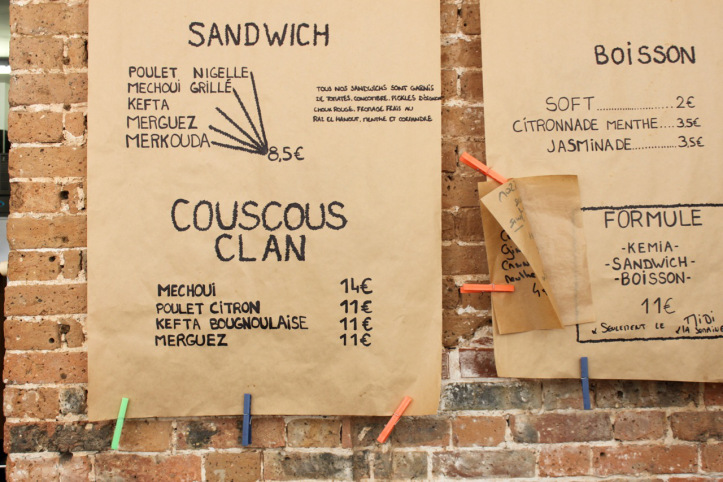 SANDWICH
POULET NIGELLE
MECHOUI GRILLÉ
KEFTA
MERGUEZ
MERKOUDA
8,5€
TOUS NOS SANDWICHS SONT GARNIS
DE TOMATES, CONCOMBRE, PICKLES D'OIGNON
CHOUX ROUGE, FROMAGE FRAIS AU
RAS EL HANOUT, MENTHE ET CORIANDRE
COUSCOUS
CLAN
MECHOUI 14€
POULET CITRON 11€
KEFTA BOUGNOULAISE 11€
MERGUEZ 11€
BOISSON
SOFT....................2€
CITRONNADE MENTHE....3,5€
JASMINADE...............3,5€
FORMULE
-KEMIA-
-SANDWICH-
-BOISSON-
11€
SEULEMENT LE MIDI
LA SEMAINE